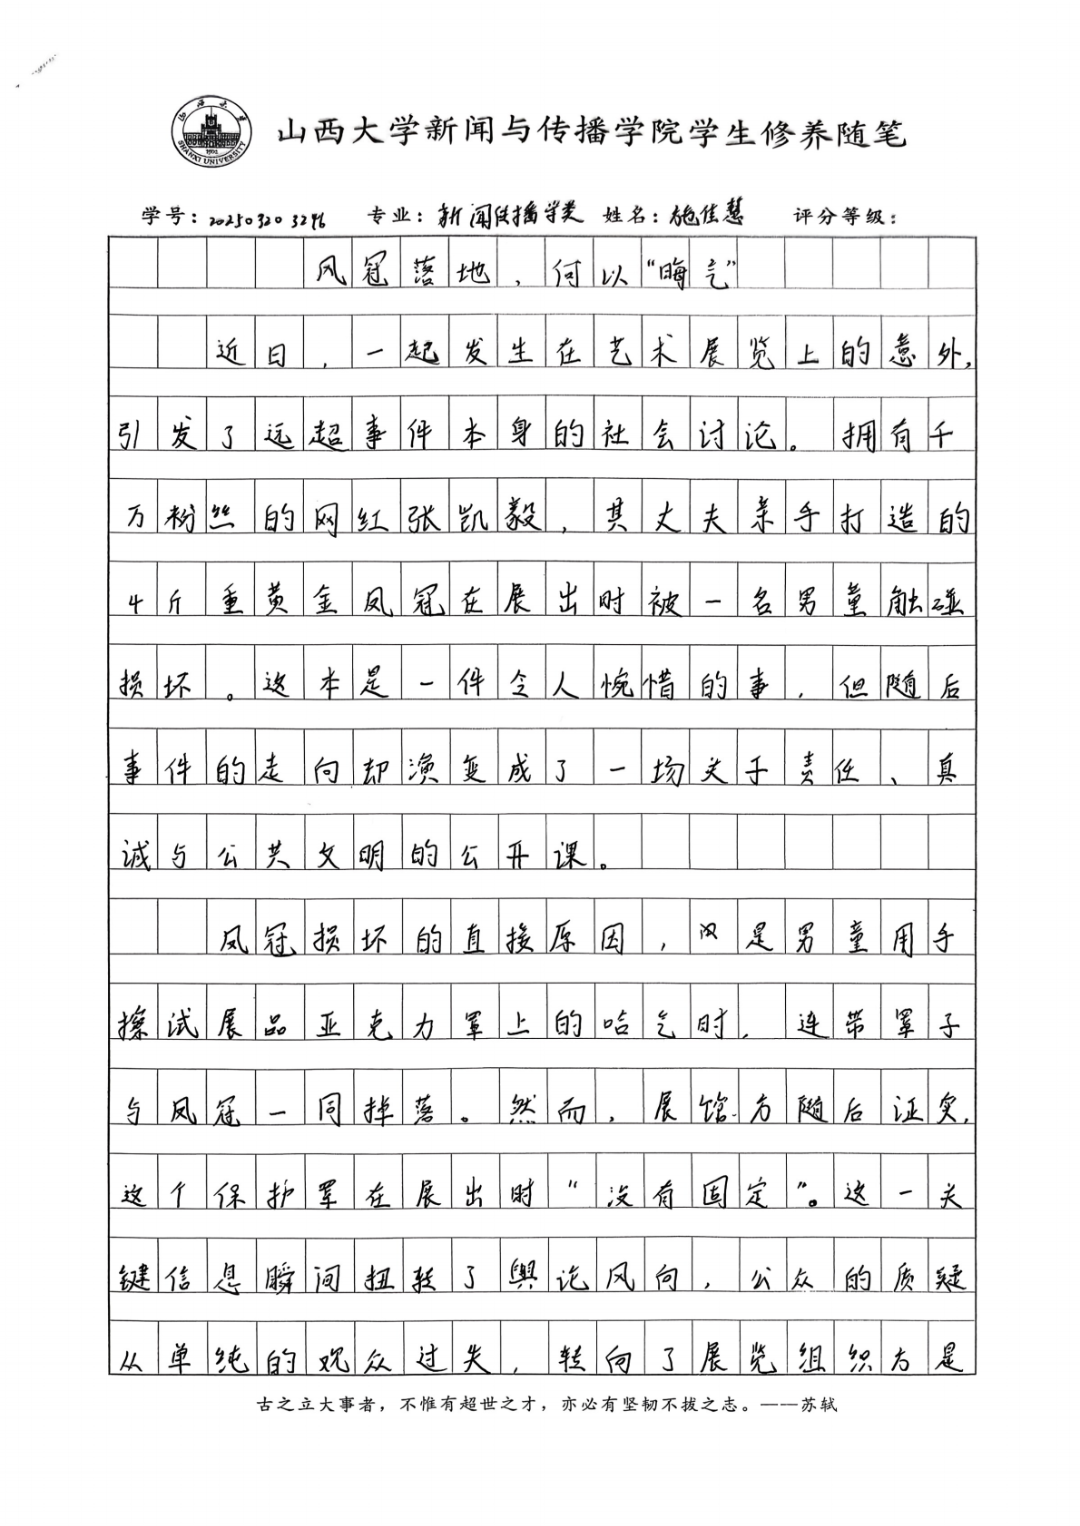 山西大学新闻与传播学院学生修养随笔
学号：202503203296 专业：新闻传播学类 姓名：施佳慧 评分等级：
风冠落地，何以“晦气”
近日，一起发生在艺术展览上的意外，
引发了远超事件本身的社会讨论。拥有千
万粉丝的网红张凯毅，其丈夫亲手打造的
4斤重黄金凤冠在展出时被一名男童触碰
损坏。这本是一件令人惋惜的事，但随后
事件的走向却演变成了一场关于责任、真
诚与公共文明的公开课。
凤冠损坏的直接原因，仅是男童用手
擦试展品亚克力罩上的哈气时，连带罩子
与凤冠一同掉落。然而，展馆方随后证实，
这个保护罩在展出时“没有固定”。这一关
键信息瞬间扭转了舆论风向，公众的质疑
从单纯的观众过失，转向了展览组织方是
古之立大事者，不惟有超世之才，亦必有坚韧不拔之志。——苏轼